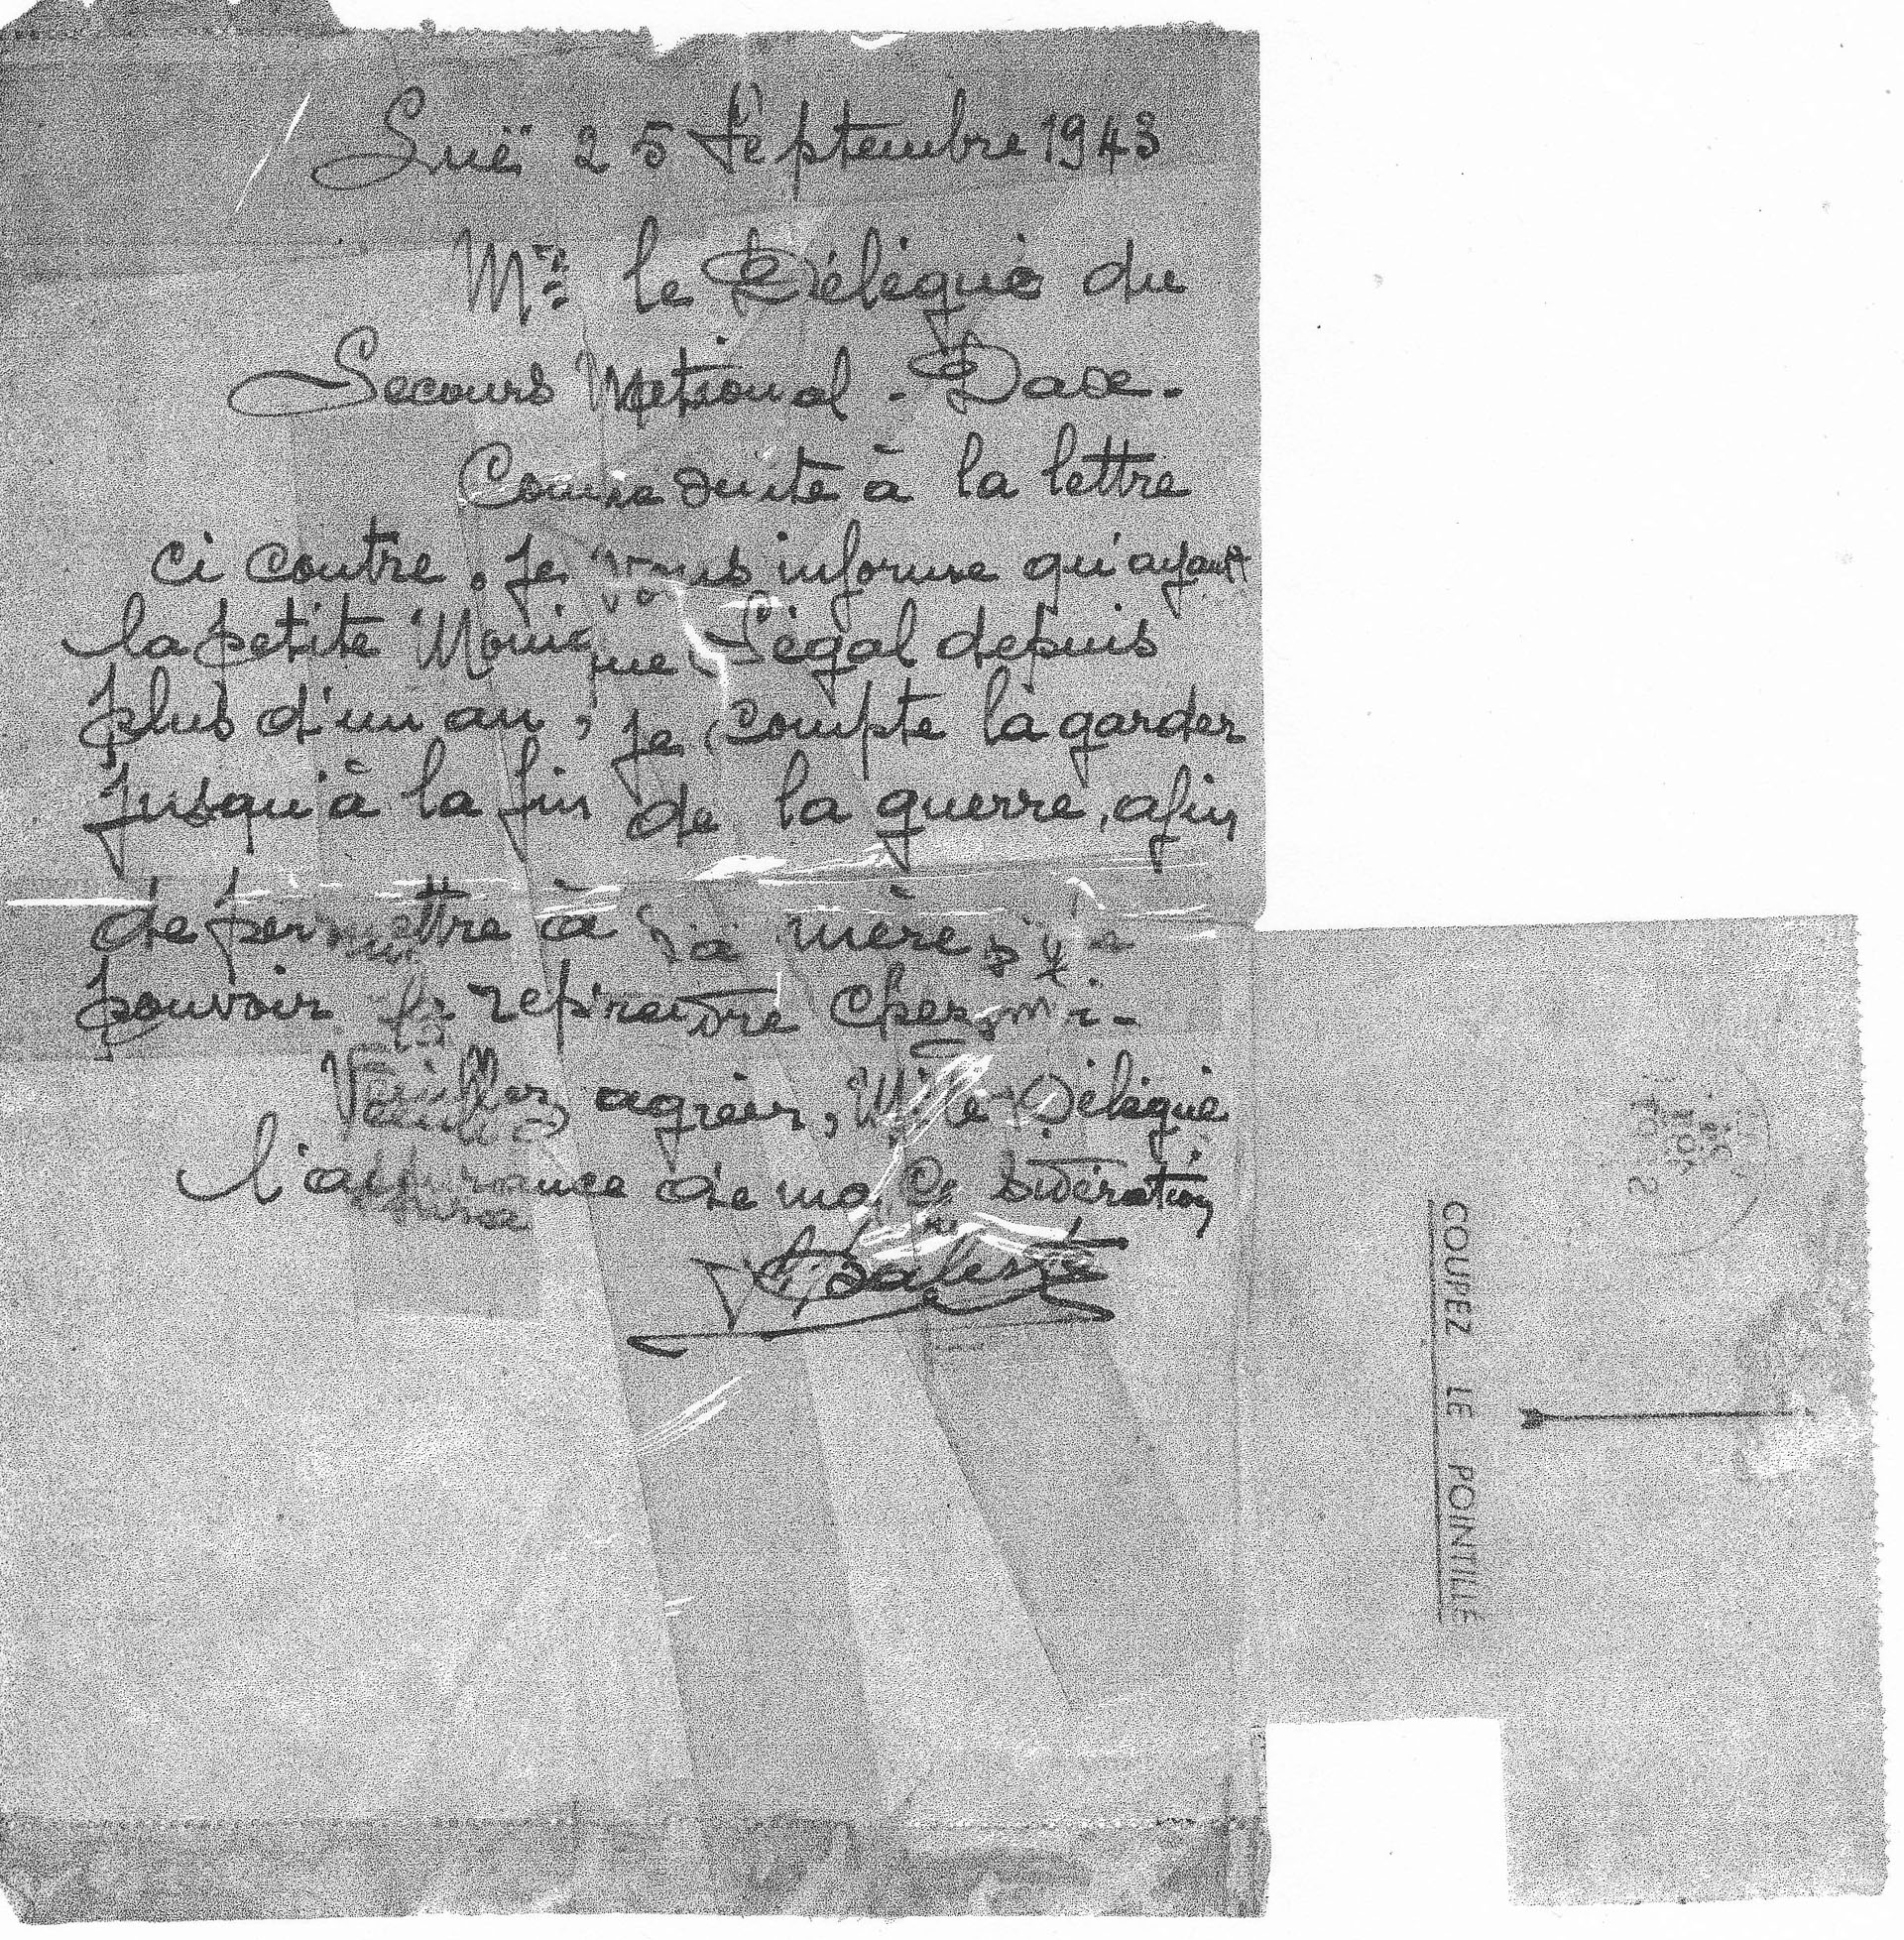 Luë 25 Septembre 1943
Mr le Délégué du
Secours National - Dax.
Comme suite à la lettre
ci contre, je vous informe qu'ayant
la petite Monique Ségal depuis
plus d'un an, je compte la garder
jusqu'à la fin de la guerre, afin
de permettre à sa mère,
pouvoir la reprendre chez moi.
Veuillez agréer, Mr le Délégué
l'assurance de ma Considération
COUPEZ LE POINTILLÉ